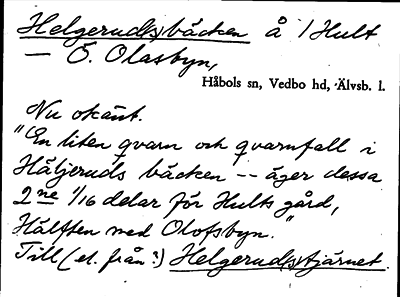 Helgeruds)bäcken å / Hult
— Ö. Olasbyn,
Håbols sn, Vedbo hd, Älvsb. l.
Nu okänt.
"En liten qvarn och qvarnfall i
Häljeruds bäcken -- äger dessa
2ne 1/16 delar för Hults gård,
Hälften med Olofsbyn."
Till (el. från?) Helgeruds)tjärnet.